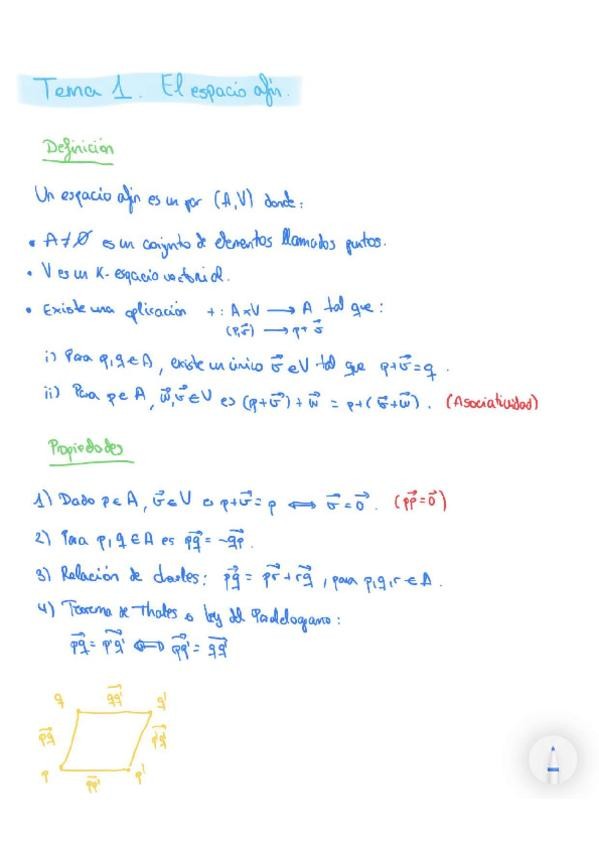 Tema 1. El espacio afín.
Definición
Un espacio afín es un par (A,V) donde:
• A≠∅ es un conjunto de elementos llamados puntos.
• V es un K-espacio vectorial.
• Existe una aplicación +: A×V → A tal que:
(p,v⃗) → p+v⃗
i) Para p,q∈A, existe un único v⃗∈V tal que p+v⃗=q.
ii) Para p∈A, w⃗,v⃗∈V es (p+v⃗)+w⃗ = p+(v⃗+w⃗). (Asociatividad)
Propiedades
1) Dado p∈A, v⃗∈V es p+v⃗=p ⟺ v⃗=0⃗. (pp⃗=0⃗)
2) Para p,q∈A es pq⃗=-qp⃗.
3) Relación de Chasles: pq⃗ = pr⃗+rq⃗, para p,q,r∈A.
4) Teorema de Thales o ley del Paralelogramo:
pq⃗=p'q'⃗ ⟺ pp'⃗=qq'⃗
q qq'⃗ q'
pq⃗ p'q'⃗
p pp'⃗ p'